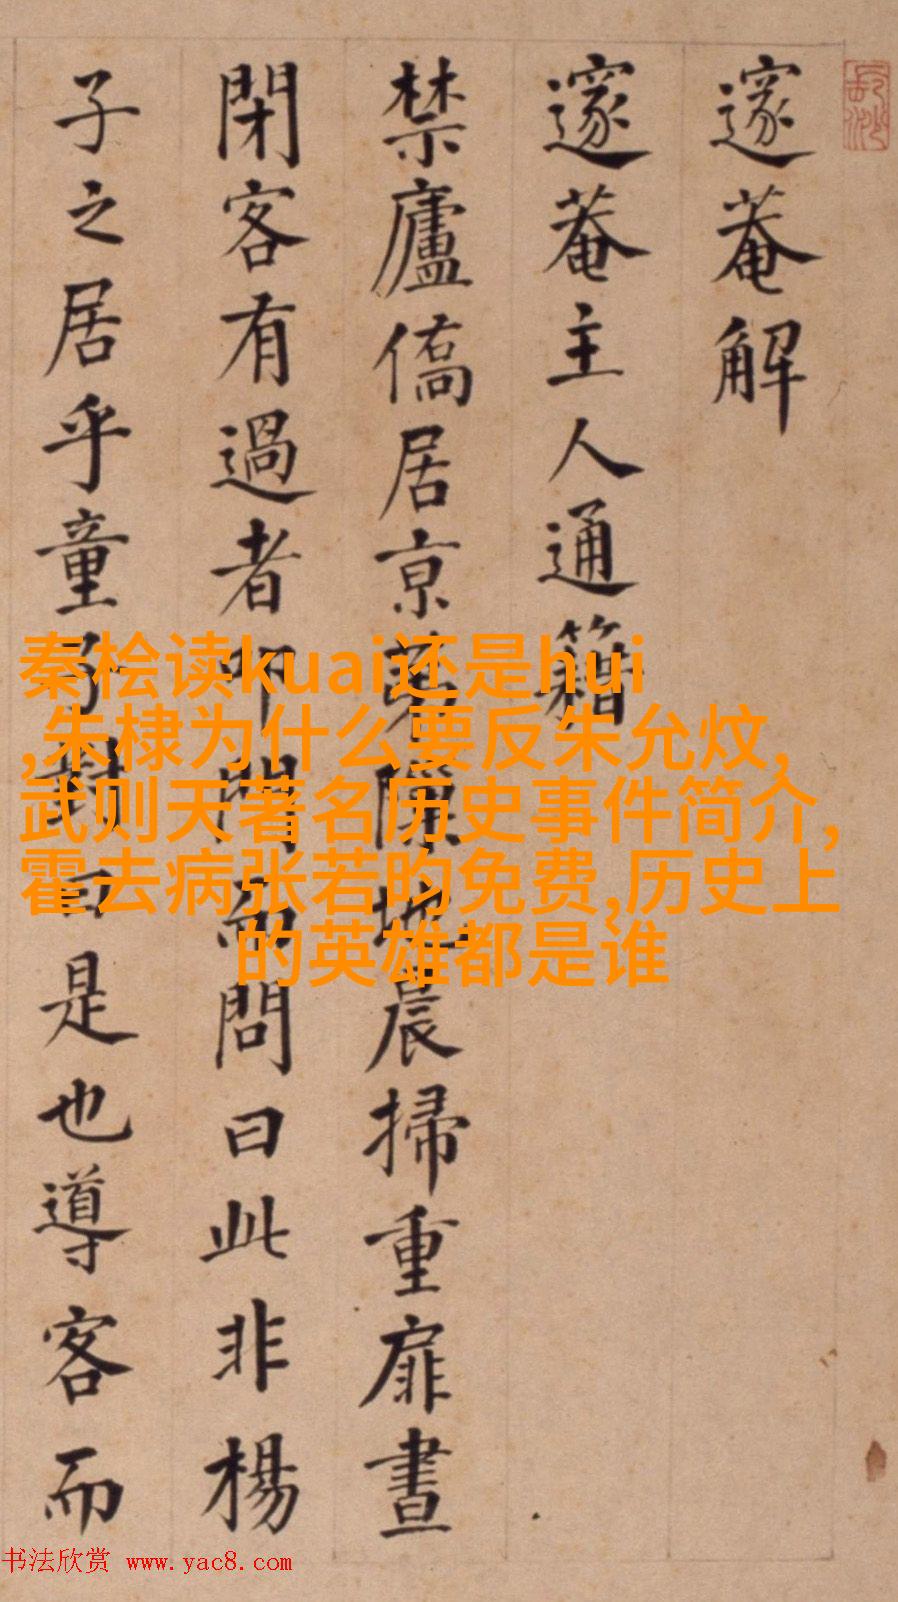 邃菴解
邃菴主人通籍
禁廬僑居京
晨掃重扉晝
閉客有過者叩門而問曰此非楊
子之居乎童
對曰是也導客而
秦桧读kuai还是hui
,朱棣为什么要反朱允炆,
武则天著名历史事件简介,
霍去病张若昀免费,历史上
的英雄都是谁
书法欣赏 www.yac8.com